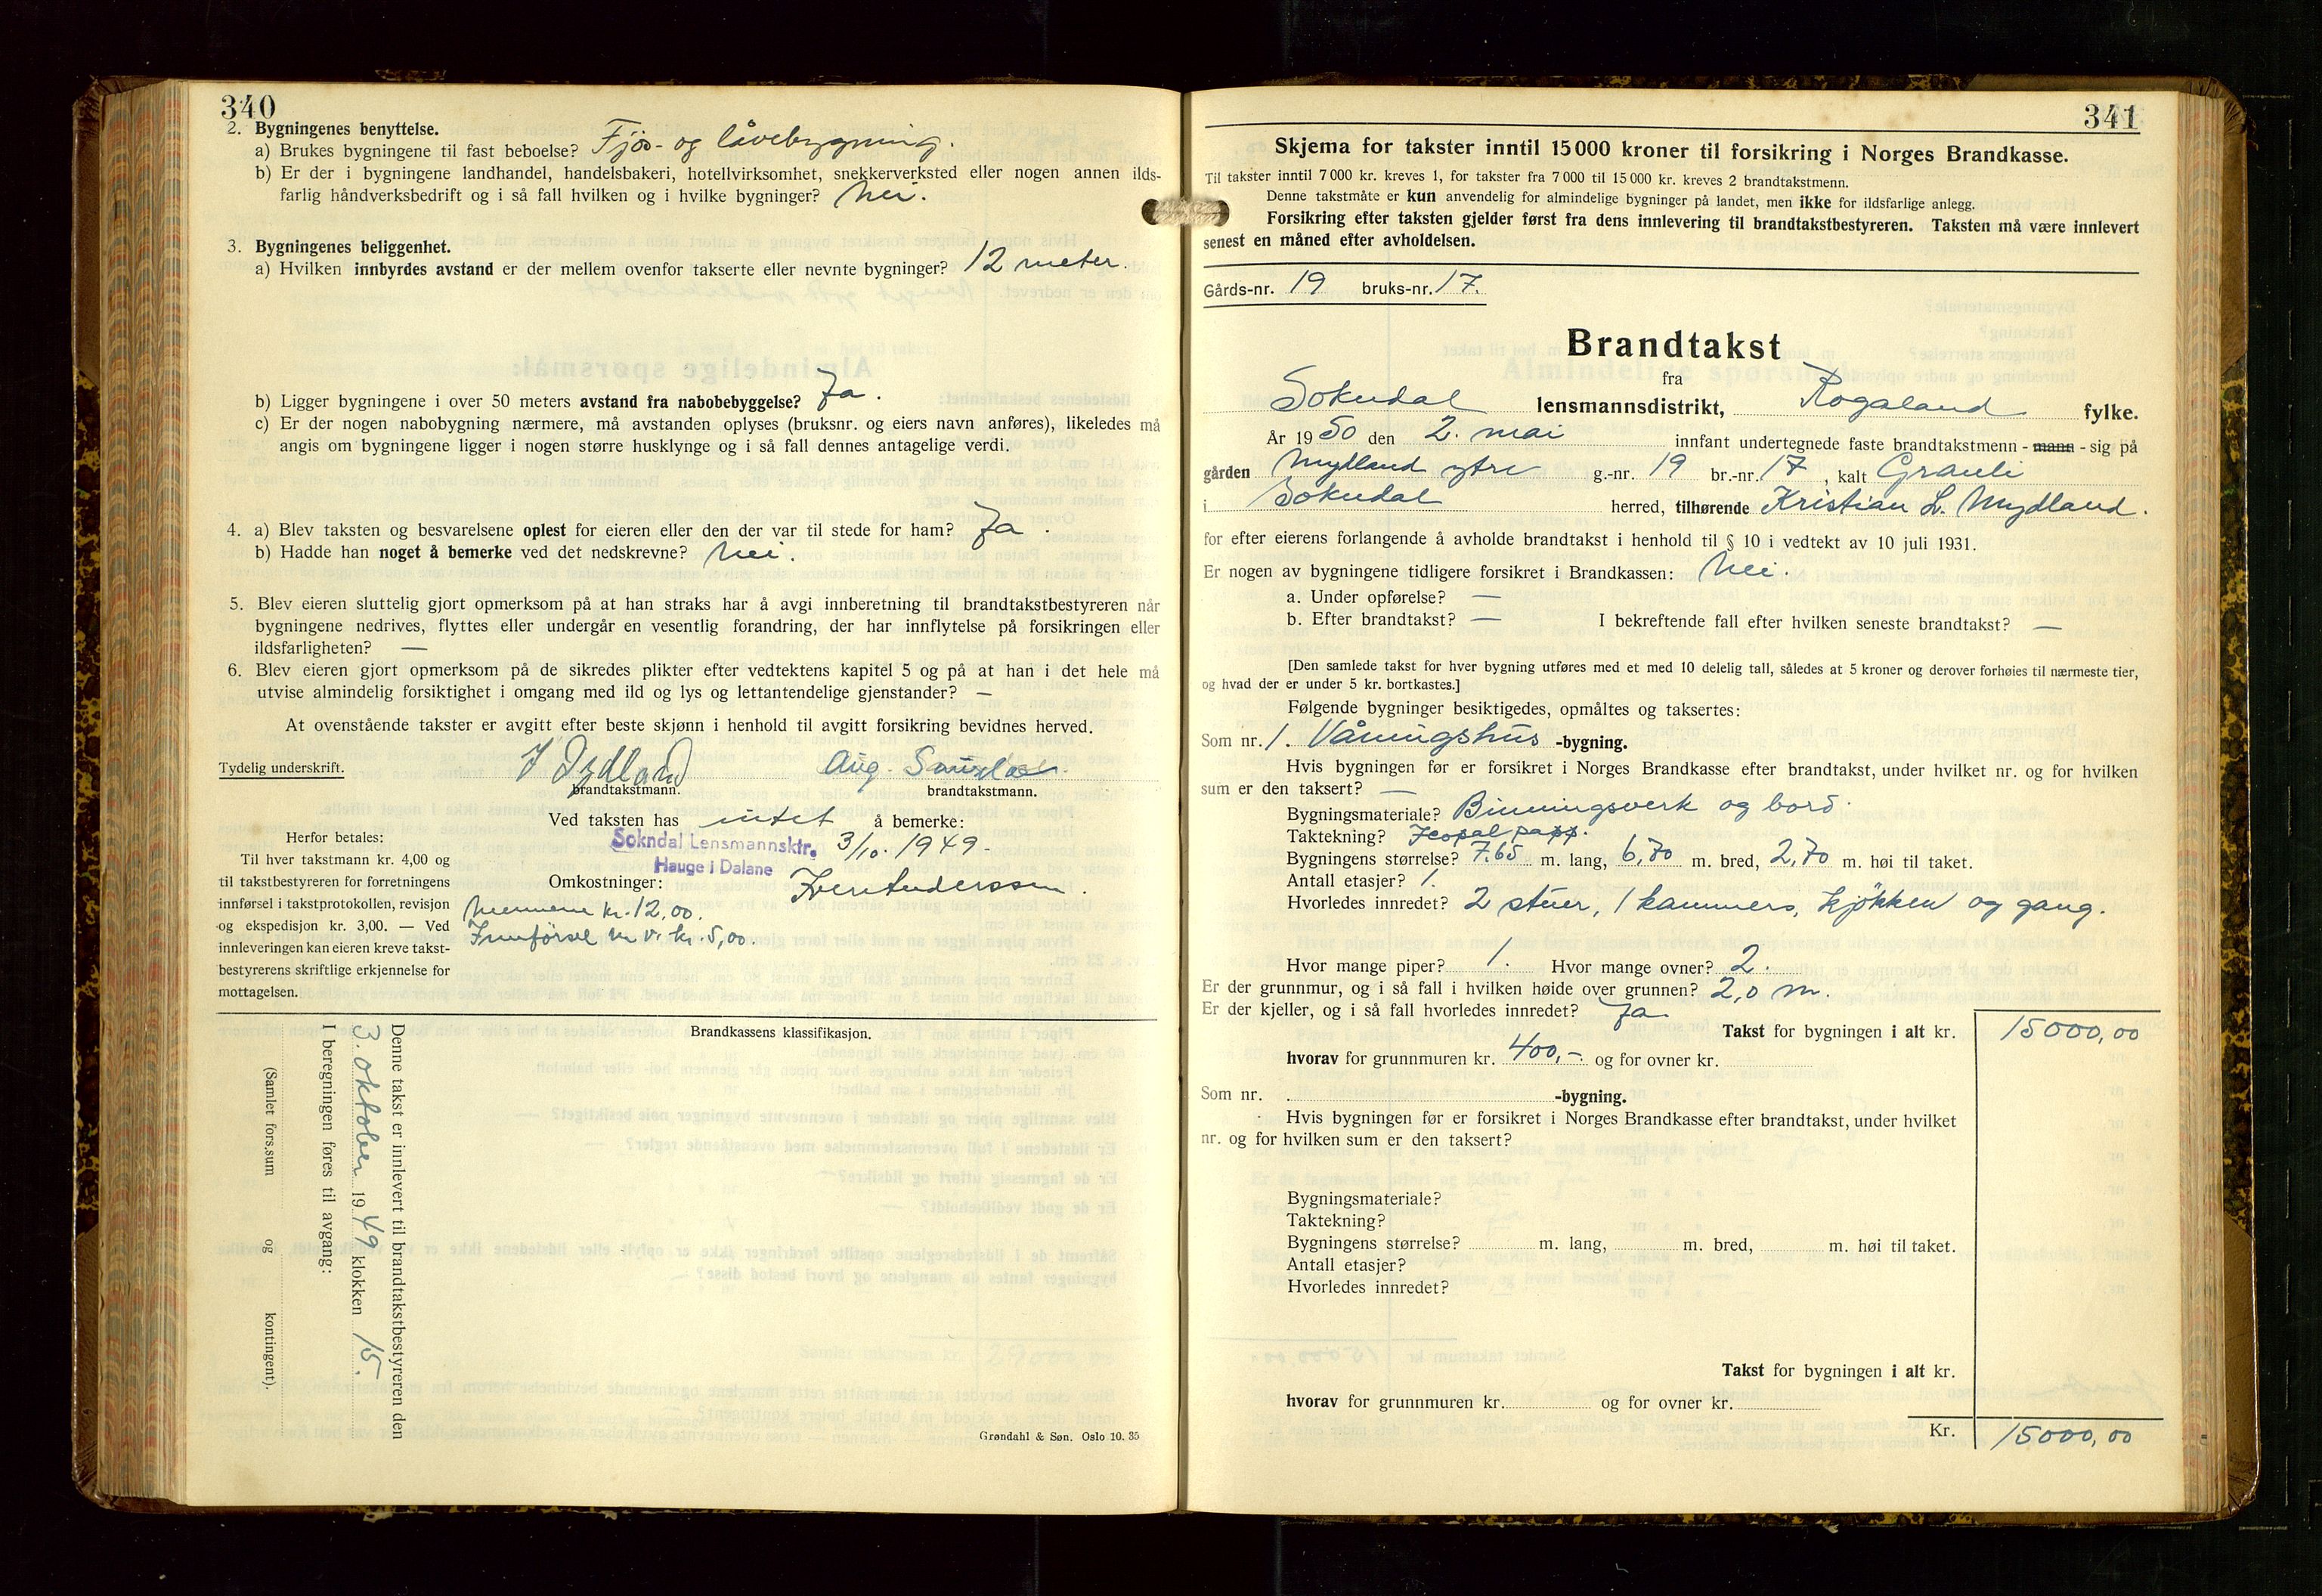 340
2. Bygningenes benyttelse.
a) Brukes bygningene til fast beboelse? Fjös- og låvebygning.
b) Er der i bygningene landhandel, handelsbakeri, hotellvirksomhet, snekkerverksted eller nogen annen ilds-
farlig håndverksbedrift og i så fall hvilken og i hvilke bygninger? Nei.
3. Bygningenes beliggenhet.
a) Hvilken innbyrdes avstand er der mellem ovenfor takserte eller nevnte bygninger? 12 meter.
b) Ligger bygningene i over 50 meters avstand fra nabobebyggelse? Ja.
c) Er der nogen nabobygning nærmere, må avstanden oplyses (bruksnr. og eiers navn anføres), likeledes må
angis om bygningene ligger i nogen større husklynge og i så fall dennes antagelige verdi.
4. a) Blev taksten og besvarelsene oplest for eieren eller den der var til stede for ham? Ja.
b) Hadde han noget å bemerke ved det nedskrevne? Nei.
5. Blev eieren sluttelig gjort opmerksom på at han straks har å avgi innberetning til brandtakstbestyreren når
bygningene nedrives, flyttes eller undergår en vesentlig forandring, der har innflytelse på forsikringen eller
ildsfarligheten? —
6. Blev eieren gjort opmerksom på de sikredes plikter efter vedtektens kapitel 5 og på at han i det hele må
utvise almindelig forsiktighet i omgang med ild og lys og lettantendelige gjenstander? —
At ovenstående takster er avgitt efter beste skjønn i henhold til avgitt forsikring bevidnes herved.
Tydelig underskrift. Aug.
brandtakstmann. brandtakstmann.
Ved taksten has intet å bemerke:
Sokndal Lensmannsktr. 3/10. 1949.
Hauge i Dalane
Herfor betales:
Til hver takstmann kr. 4,00 og
til takstbestyreren for forretningens
innførsel i takstprotokollen, revisjon
og ekspedisjon kr. 3,00. — Ved
innleveringen kan eieren kreve takst-
bestyrerens skriftlige erkjennelse for
mottagelsen.
Omkostninger:
Mennene kr. 12,00.
Innförsel m.v. kr. 5,00.
Brandkassens klassifikasjon.
Denne takst er innlevert til brandtakstbestyreren den
3. oktober 1949 klokken 15.
I beregningen føres til avgang:
(Samlet fors.sum og kontingent).
Grøndahl & Søn. Oslo 10. 35
341
Skjema for takster inntil 15 000 kroner til forsikring i Norges Brandkasse.
Til takster inntil 7 000 kr. kreves 1, for takster fra 7 000 til 15 000 kr. kreves 2 brandtakstmenn.
Denne takstmåte er kun anvendelig for almindelige bygninger på landet, men ikke for ildsfarlige anlegg.
Forsikring efter taksten gjelder først fra dens innlevering til brandtakstbestyreren. Taksten må være innlevert
senest en måned efter avholdelsen.
Gårds-nr. 19 bruks-nr. 17.
Brandtakst
fra
Sokndal lensmannsdistrikt, Rogaland fylke.
År 1950 den 2. mai innfant undertegnede faste brandtakstmenn - mann - sig på
gården Mydland ytre g.-nr. 19 br.-nr. 17, kalt Granli
i Sokndal herred, tilhørende Kristian L. Mydland.
for efter eierens forlangende å avholde brandtakst i henhold til § 10 i vedtekt av 10 juli 1931.
Er nogen av bygningene tidligere forsikret i Brandkassen: Nei.
a. Under opførelse? —
b. Efter brandtakst? — I bekreftende fall efter hvilken seneste brandtakst? —
[Den samlede takst for hver bygning utføres med et med 10 delelig tall, således at 5 kroner og derover forhøies til nærmeste tier,
og hvad der er under 5 kr. bortkastes.]
Følgende bygninger besiktigedes, opmåltes og taksertes:
Som nr. 1. Våningshus -bygning.
Hvis bygningen før er forsikret i Norges Brandkasse efter brandtakst, under hvilket nr. og for hvilken
sum er den taksert? —
Bygningsmateriale? Binningsverk og bord.
Taktekning? Icopal papp.
Bygningens størrelse? 7.65 m. lang, 6,70 m. bred, 2,70 m. høi til taket.
Antall etasjer? 1.
Hvorledes innredet? 2 stuer, 1 kammers, kjökken og gang.
Hvor mange piper? 1. Hvor mange ovner? 2.
Er der grunnmur, og i så fall i hvilken høide over grunnen? 2,0 m.
Er der kjeller, og i så fall hvorledes innredet? Ja
Takst for bygningen i alt kr. 15000,00
hvorav for grunnmuren kr. 400,- og for ovner kr.
Som nr. -bygning.
Hvis bygningen før er forsikret i Norges Brandkasse efter brandtakst, under hvilket
nr. og for hvilken sum er den taksert?
Bygningsmateriale?
Taktekning?
Bygningens størrelse? m. lang, m. bred, m. høi til taket.
Antall etasjer?
Hvorledes innredet?
Takst for bygningen i alt kr.
hvorav for grunnmuren kr. og for ovner kr.
Kr. 15000,00